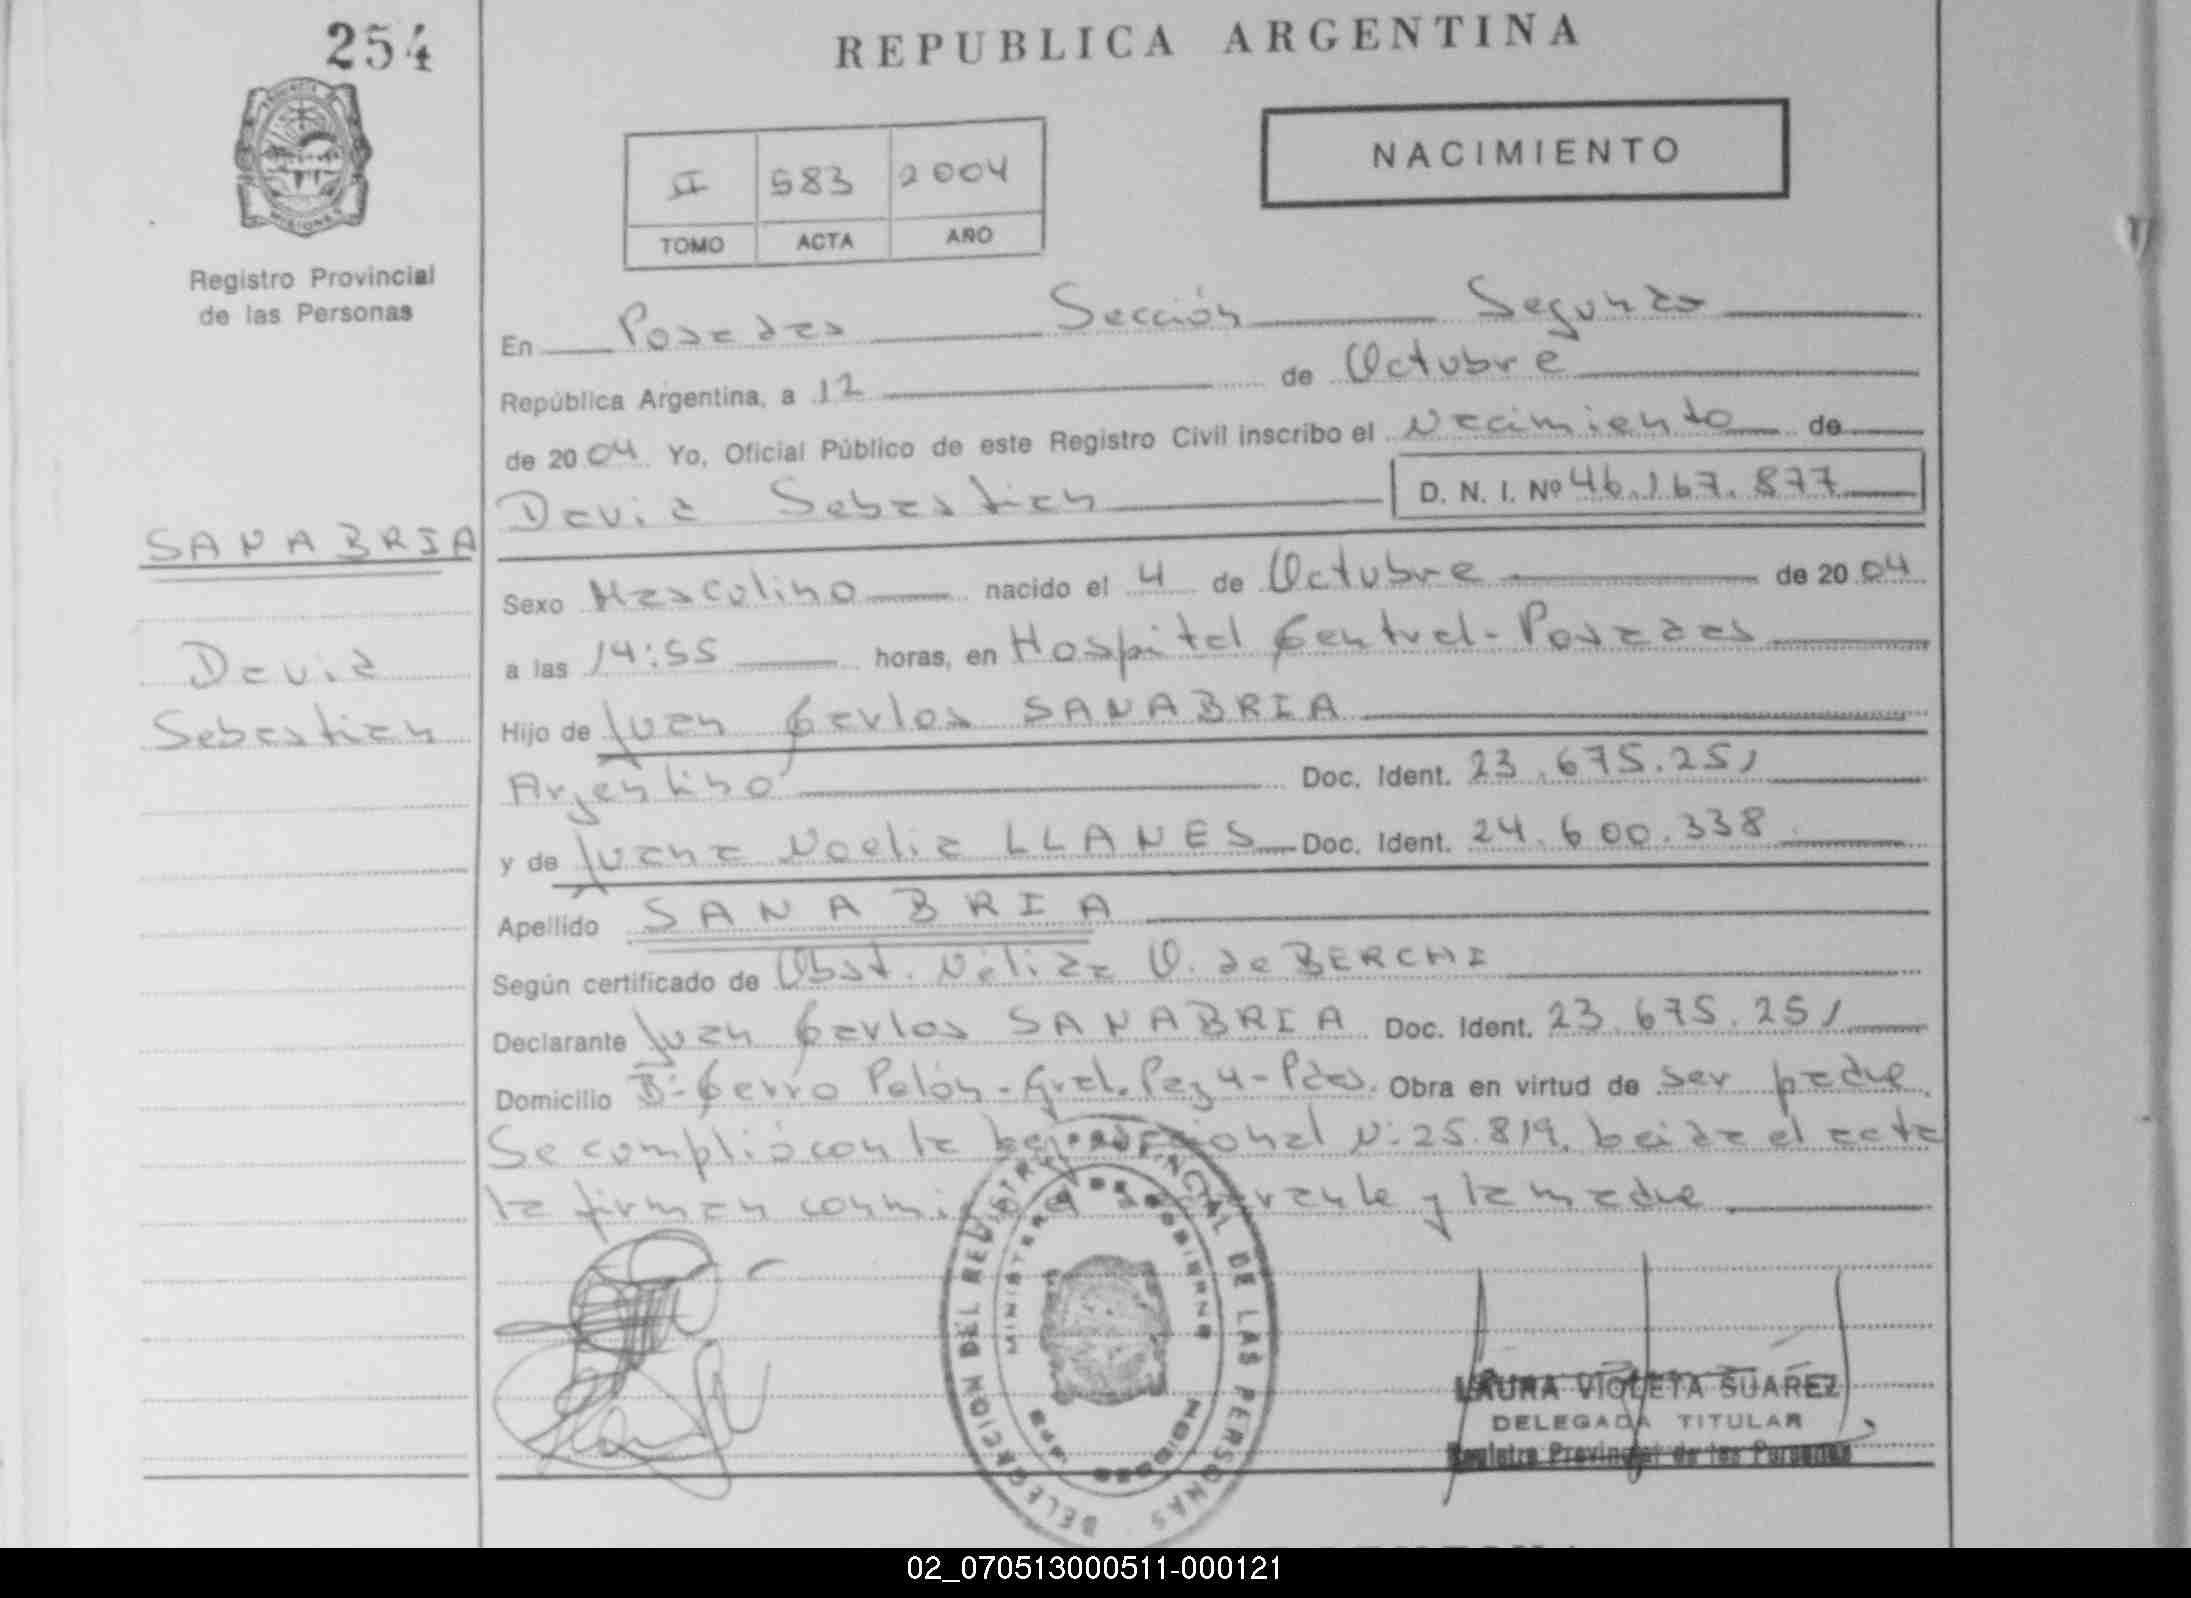 254
REPUBLICA ARGENTINA
PROVINCIA
MISIONES
Registro Provincial
de las Personas
II 583 2004
TOMO ACTA AÑO
NACIMIENTO
En Posadas Sección Segunda
República Argentina, a 12 de Octubre
de 2004 Yo, Oficial Público de este Registro Civil inscribo el Nacimiento de
David Sebastian D. N. I. Nº 46.167.877
SANABRIA
David
Sebastian
Sexo Masculino nacido el 4 de Octubre de 2004
a las 14:55 horas, en Hospital Central - Posadas
Hijo de Juan Carlos SANABRIA
Argentino Doc. Ident. 23.675.251
y de Juana Noelia LLANES Doc. Ident. 24.600.338
Apellido SANABRIA
Según certificado de Obst. Nélida O. de BERCHI
Declarante Juan Carlos SANABRIA Doc. Ident. 23.675.251
Domicilio Bº Cerro Pelón - Gral. Paz 4 - Pdas. Obra en virtud de ser padre
Se complió con la Ley Nacional Nº 25.819. Leida el acta
la firman conmigo el declarante y la madre
DELEGACION DEL REGISTRO PROVINCIAL DE LAS PERSONAS
MINISTERIO DE GOBIERNO
LAURA VIOLETA SUAREZ
DELEGADA TITULAR
Registro Provincial de las Personas
02_070513000511-000121